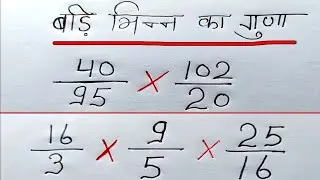 बड़ि भिन्न का गुणा
40/95 × 102/20
16/3 × 9/5 × 25/16